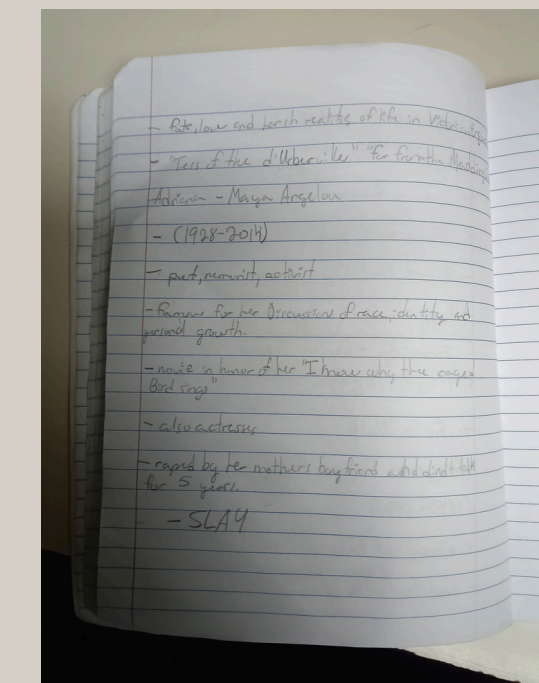 - fate, love and harsh realities of life in Victorian
- "Tess of the d'Urberville" "Far from the Madding
Adriana - Maya Angelou
- (1928-2014)
- poet, memorist, activist
- Famous for her Discussions of race, identity and
personal growth.
- movie in honor of her "I know why the caged
Bird sings"
- also actresses
- raped by her mothers boyfriend and didnt talk
for 5 years.
- SLAY